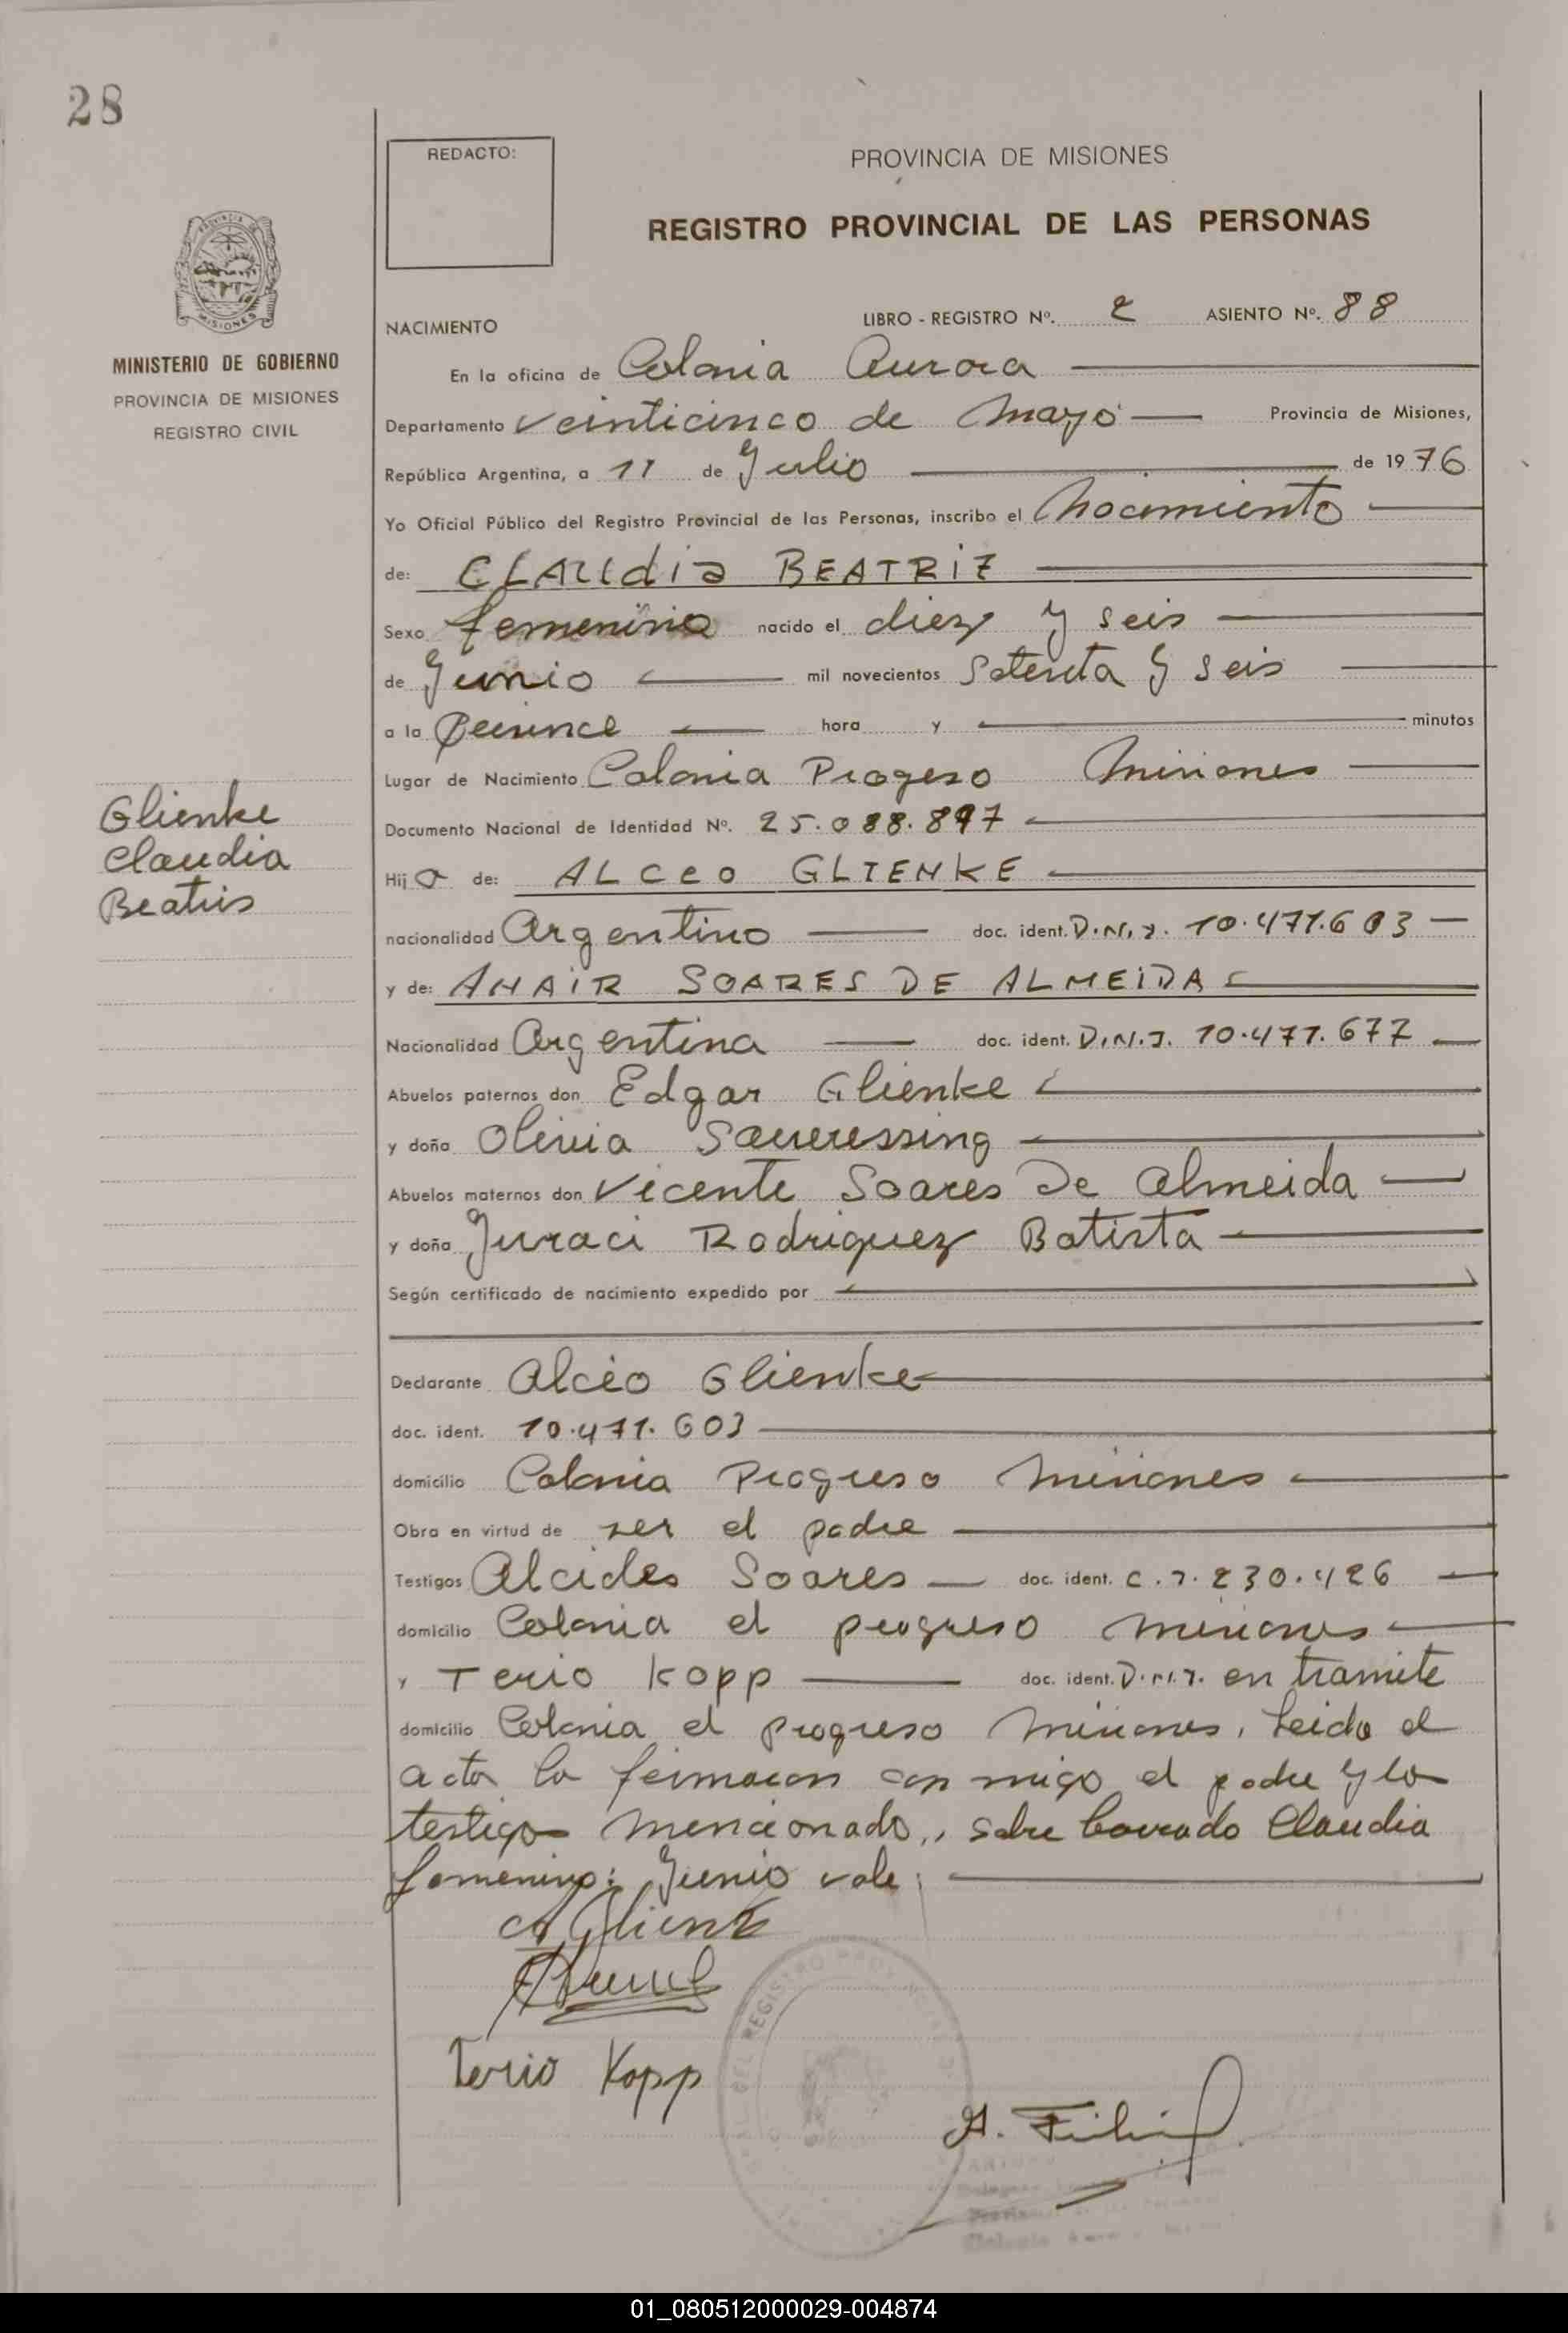 28
REDACTO:
PROVINCIA DE MISIONES
REGISTRO PROVINCIAL DE LAS PERSONAS
MISIONES
MINISTERIO DE GOBIERNO
PROVINCIA DE MISIONES
REGISTRO CIVIL
NACIMIENTO LIBRO - REGISTRO Nº. 2 ASIENTO Nº. 88
En la oficina de Colonia Aurora
Departamento Veinticinco de Mayo Provincia de Misiones,
República Argentina, a 11 de Julio de 1976
Yo Oficial Público del Registro Provincial de las Personas, inscribo el Nacimiento
de: CLAUdia BEATRiZ
Sexo femenino nacido el diez y seis
de Junio mil novecientos Setenta y seis
a la quince hora y minutos
Lugar de Nacimiento Colonia Progeso Misiones
Glienke
Claudia
Beatris
Documento Nacional de Identidad Nº. 25.088.897
Hija de: ALCEO GLIENKE
nacionalidad Argentino doc. ident. D.N.I. 10.471.603
y de: ANAIR SOARES DE ALMEIDA
Nacionalidad Argentina doc. ident. D.N.I. 10.477.677
Abuelos paternos don Edgar Glienke
y doña Olivia
Abuelos maternos don Vicente Soares De Almeida
y doña Juraci Rodriguez Batista
Según certificado de nacimiento expedido por
Declarante Alceo Glienke
doc. ident. 10.471.603
domicilio Colonia Progreso Misiones
Obra en virtud de ser el padre
Testigos Alcides Soares doc. ident. C.I. 230.426
domicilio Colonia el progreso misiones
y Terio Kopp doc. ident. D.N.I. en tramite
domicilio Colonia el progreso Misiones, Leido el
acta la firmaron con migo el padre y los
testigos mencionado,, sobre borrado Claudia
femenino: Junio vale
Terio Kopp
01_080512000029-004874